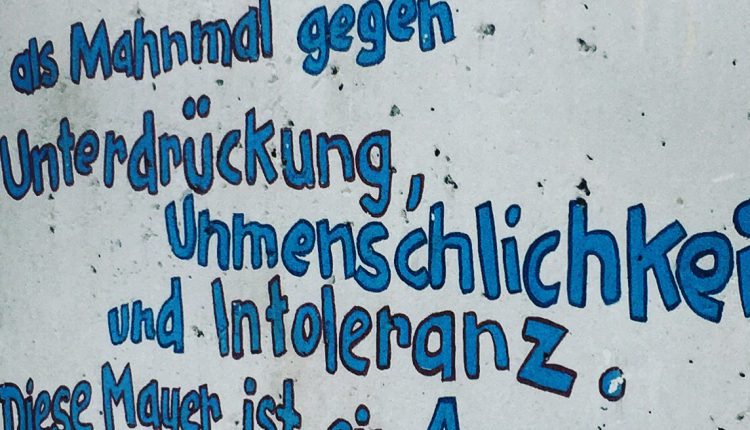 als Mahnmal gegen
Unterdrückung,
Unmenschlichkei
und Intoleranz.
Diese Mauer ist ein A